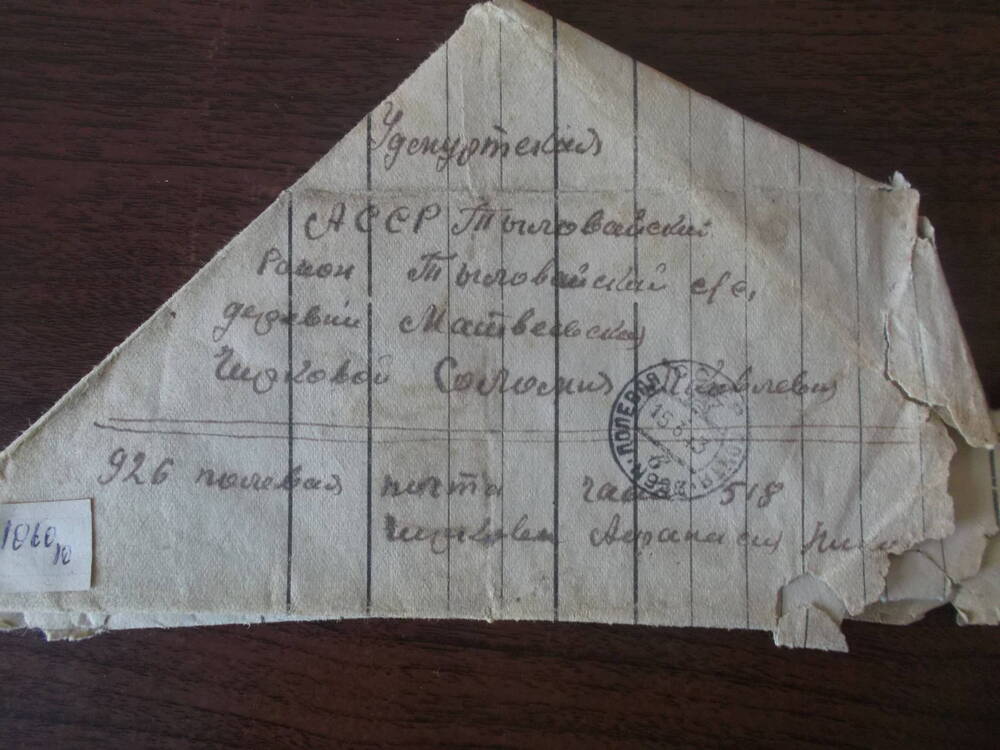 Удмуртская
АССР Тыловайский
Район Тыловайский с/с,
деревни Матвеевская
Чирковой Соломия Яковлевня
ПОЛЕВАЯ ПОЧТА
15 3 43
926 полевая почта часть 518
Чирковви Афанасия
1860/10